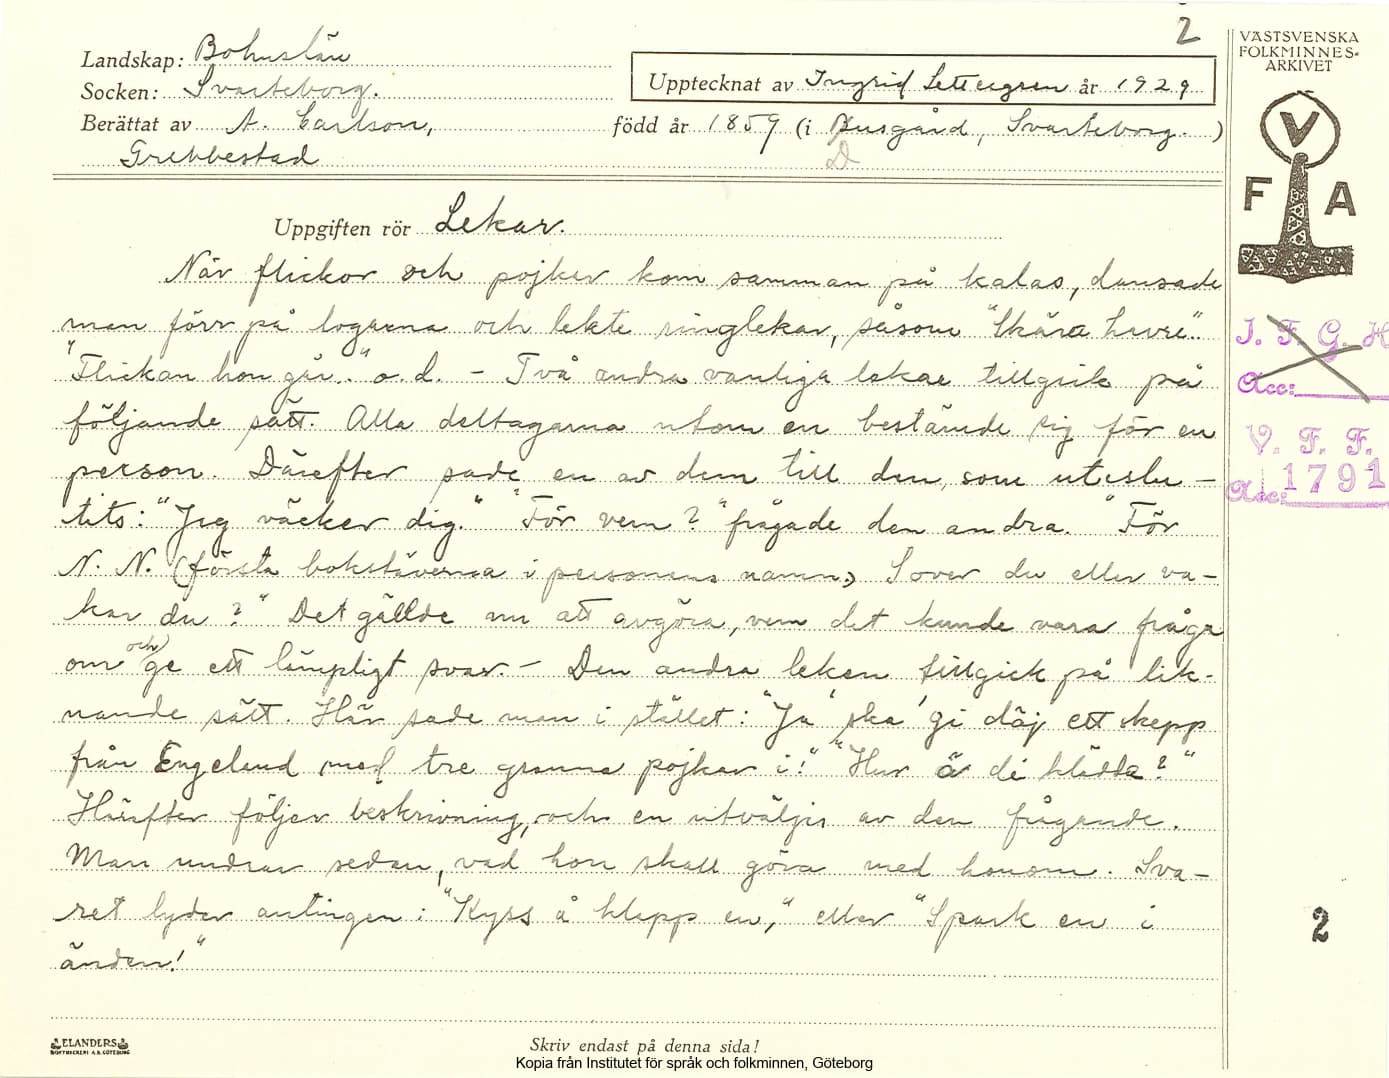 2
VÄSTSVENSKA
FOLKMINNES-
ARKIVET
Landskap: Bohuslän
Socken: Svarteborg.
Upptecknat av Ingrid Settergren år 1929
Berättat av A. Carlson,
född år 1859 (i Dusgård, Svarteborg. )
D
Grebbestad
V
F A
Uppgiften rör Lekar.
När flickor och pojkar kom samman på kalas, dansade
man förr på logarna och lekte ringlekar, såsom "Skära havre".
"Flickan hon går.." o.d. - Två andra vanliga lekar tillgick på
följande sätt. Alla deltagarna utom en bestämde sig för en
person. Därefter sade en av dem till den, som uteslu-
tits: "Jeg väcker dig." "För vem?" frågade den andra. "För
N. N. (första bokstäverna i personens namn) Sover du eller va-
kar du?" Det gällde nu att avgöra, vem det kunde vara fråga
om och ge ett lämpligt svar. - Den andra leken tillgick på lik-
nande sätt. Här sade man i stället: "Ja' ska' gi däj ett skepp
från Engeland med tre granna pojkar i!" "Hur ä di klädda?"
Härefter följer beskrivning, och en utväljes av den frågande.
Man undrar sedan, vad hon skall göra med honom. Sva-
ret lyder antingen: "Kyss å klapp en," eller "Spark en i
änden!"
J. F. G. H
Acc:
V. F. F.
Acc: 1791
2
ELANDERS
BOKTRYCKERI A.B. GÖTEBORG
Skriv endast på denna sida!
Kopia från Institutet för språk och folkminnen, Göteborg